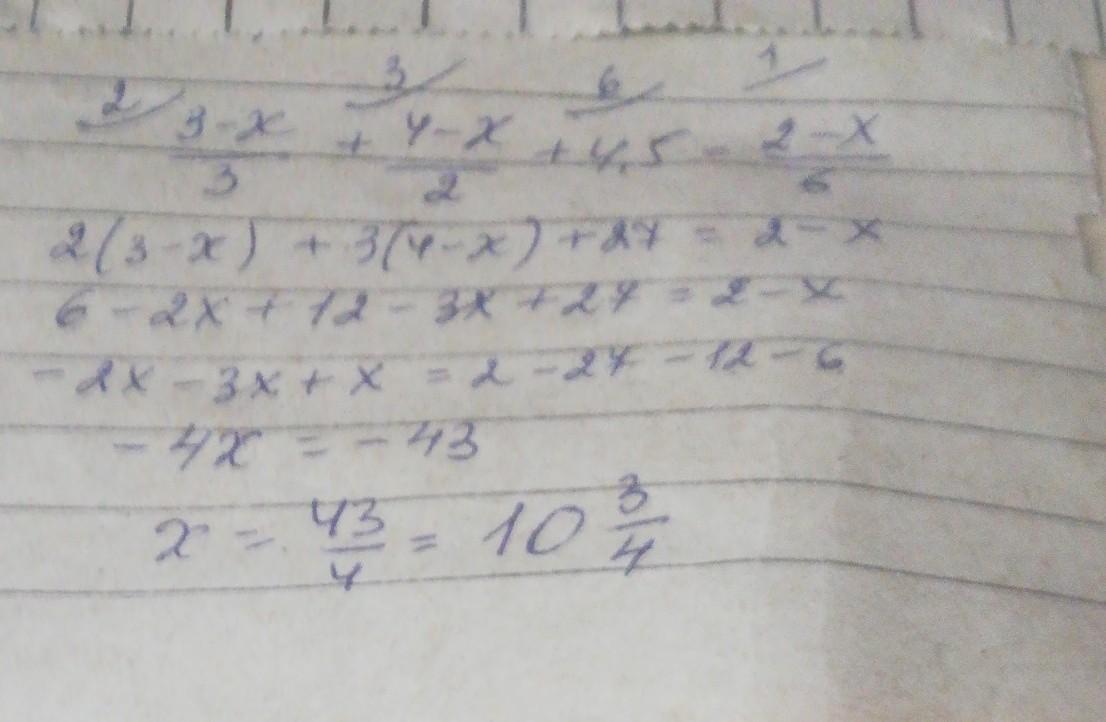 2 3 6 1
3-x/3 + 4-x/2 + 4,5 = 2-x/6
2(3-x) + 3(4-x) + 27 = 2-x
6-2x+12-3x+27=2-x
-2x-3x+x=2-27-12-6
-4x=-43
x=43/4=10 3/4